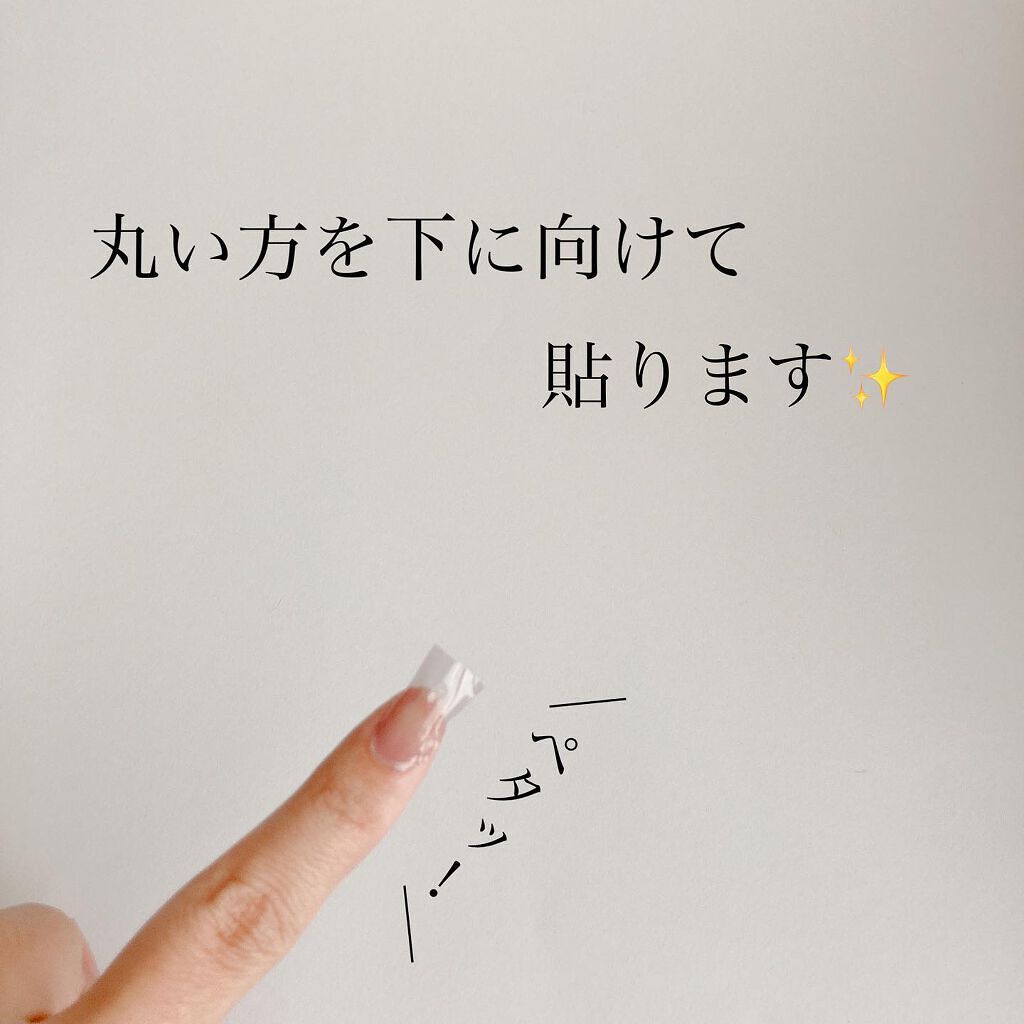 丸い方を下に向けて
貼ります✨
ペタッ!